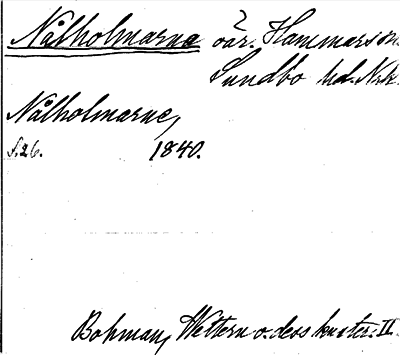 Nålholmarna öar. Hammars sn.
Sundbo hd. Nrk.
Nålholmarne,
s. 26. 1840.
Bohman, Wettern o. dess kuster. II.